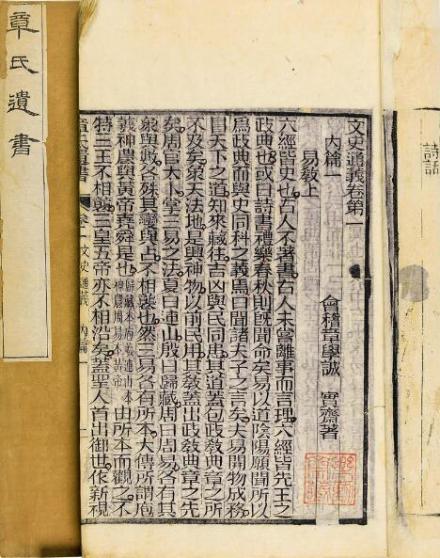 章氏遺書
詩話
文史通義卷第一
內篇一
會稽章學誠 實齋著
易教上
六經皆史也古人不著書古人未嘗離事而言理六經皆先王之
政典也或曰詩書禮樂春秋則既聞命矣易以道陰陽願聞所以
為政典而與史同科之義焉曰聞諸夫子之言矣夫易開物成務
冒天下之道知來藏往吉凶與民同患其道蓋包政教典章之所
不及矣象天法地是興神物以前民用其教蓋出政教典章之先
矣周官太卜掌三易之法夏曰連山殷曰歸藏周曰周易各有其
象與數各殊其變與占不相襲也然三易各有所本大傳所謂庖
羲神農與黃帝堯舜是也歸藏本庖羲連山本神農周易本黃帝由所本而觀之不
特三王不相襲三皇五帝亦不相沿矣蓋聖人首出御世作新視
章氏遺書 卷一 文史通義 內篇一